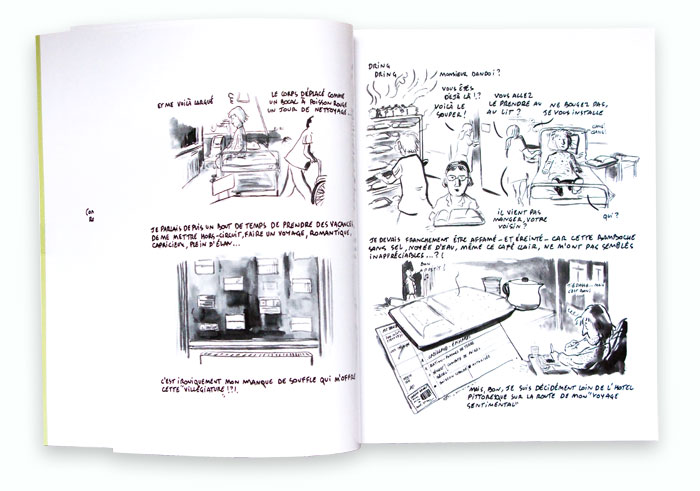 ET ME VOILÀ LARGUÉ
LE CORPS DÉPLACÉ COMME
UN BOCAL À POISSON ROUGE
UN JOUR DE NETTOYAGE...
JE PARLAIS DEPUIS UN BOUT DE TEMPS DE PRENDRE DES VACANCES
DE ME METTRE HORS-CIRCUIT, FAIRE UN VOYAGE, ROMANTIQUE,
CAPRICIEUX, PLEIN D'ÉLAN...
C'EST IRONIQUEMENT MON MANQUE DE SOUFFLE QUI M'OFFRE
CETTE "VILLÉGIATURE"!?!.
DRING
DRING
MONSIEUR DANDOI?
VOUS ÊTES
DÉJÀ LÀ!?
VOILÀ LE
SOUPER!
VOUS ALLEZ
LE PRENDRE AU
AU LIT?
NE BOUGEZ PAS,
JE VOUS INSTALLE
IL VIENT PAS
MANGER, VOTRE
VOISIN?
QUI?
JE DEVAIS FRANCHEMENT ÊTRE AFFAMÉ - ET ÉREINTÉ - CAR CETTE BAMBOCHE
SANS SEL, NOYÉE D'EAU, MÊME CE CAFÉ CLAIR, NE M'ONT PAS SEMBLÉS
INAPPRÉCIABLES...?!
BON
APPÉTIT!
"MAIS, BON, JE SUIS DÉCIDÉMENT LOIN DE L'HOTEL
PITTORESQUE SUR LA ROUTE DE MON "VOYAGE
SENTIMENTAL"